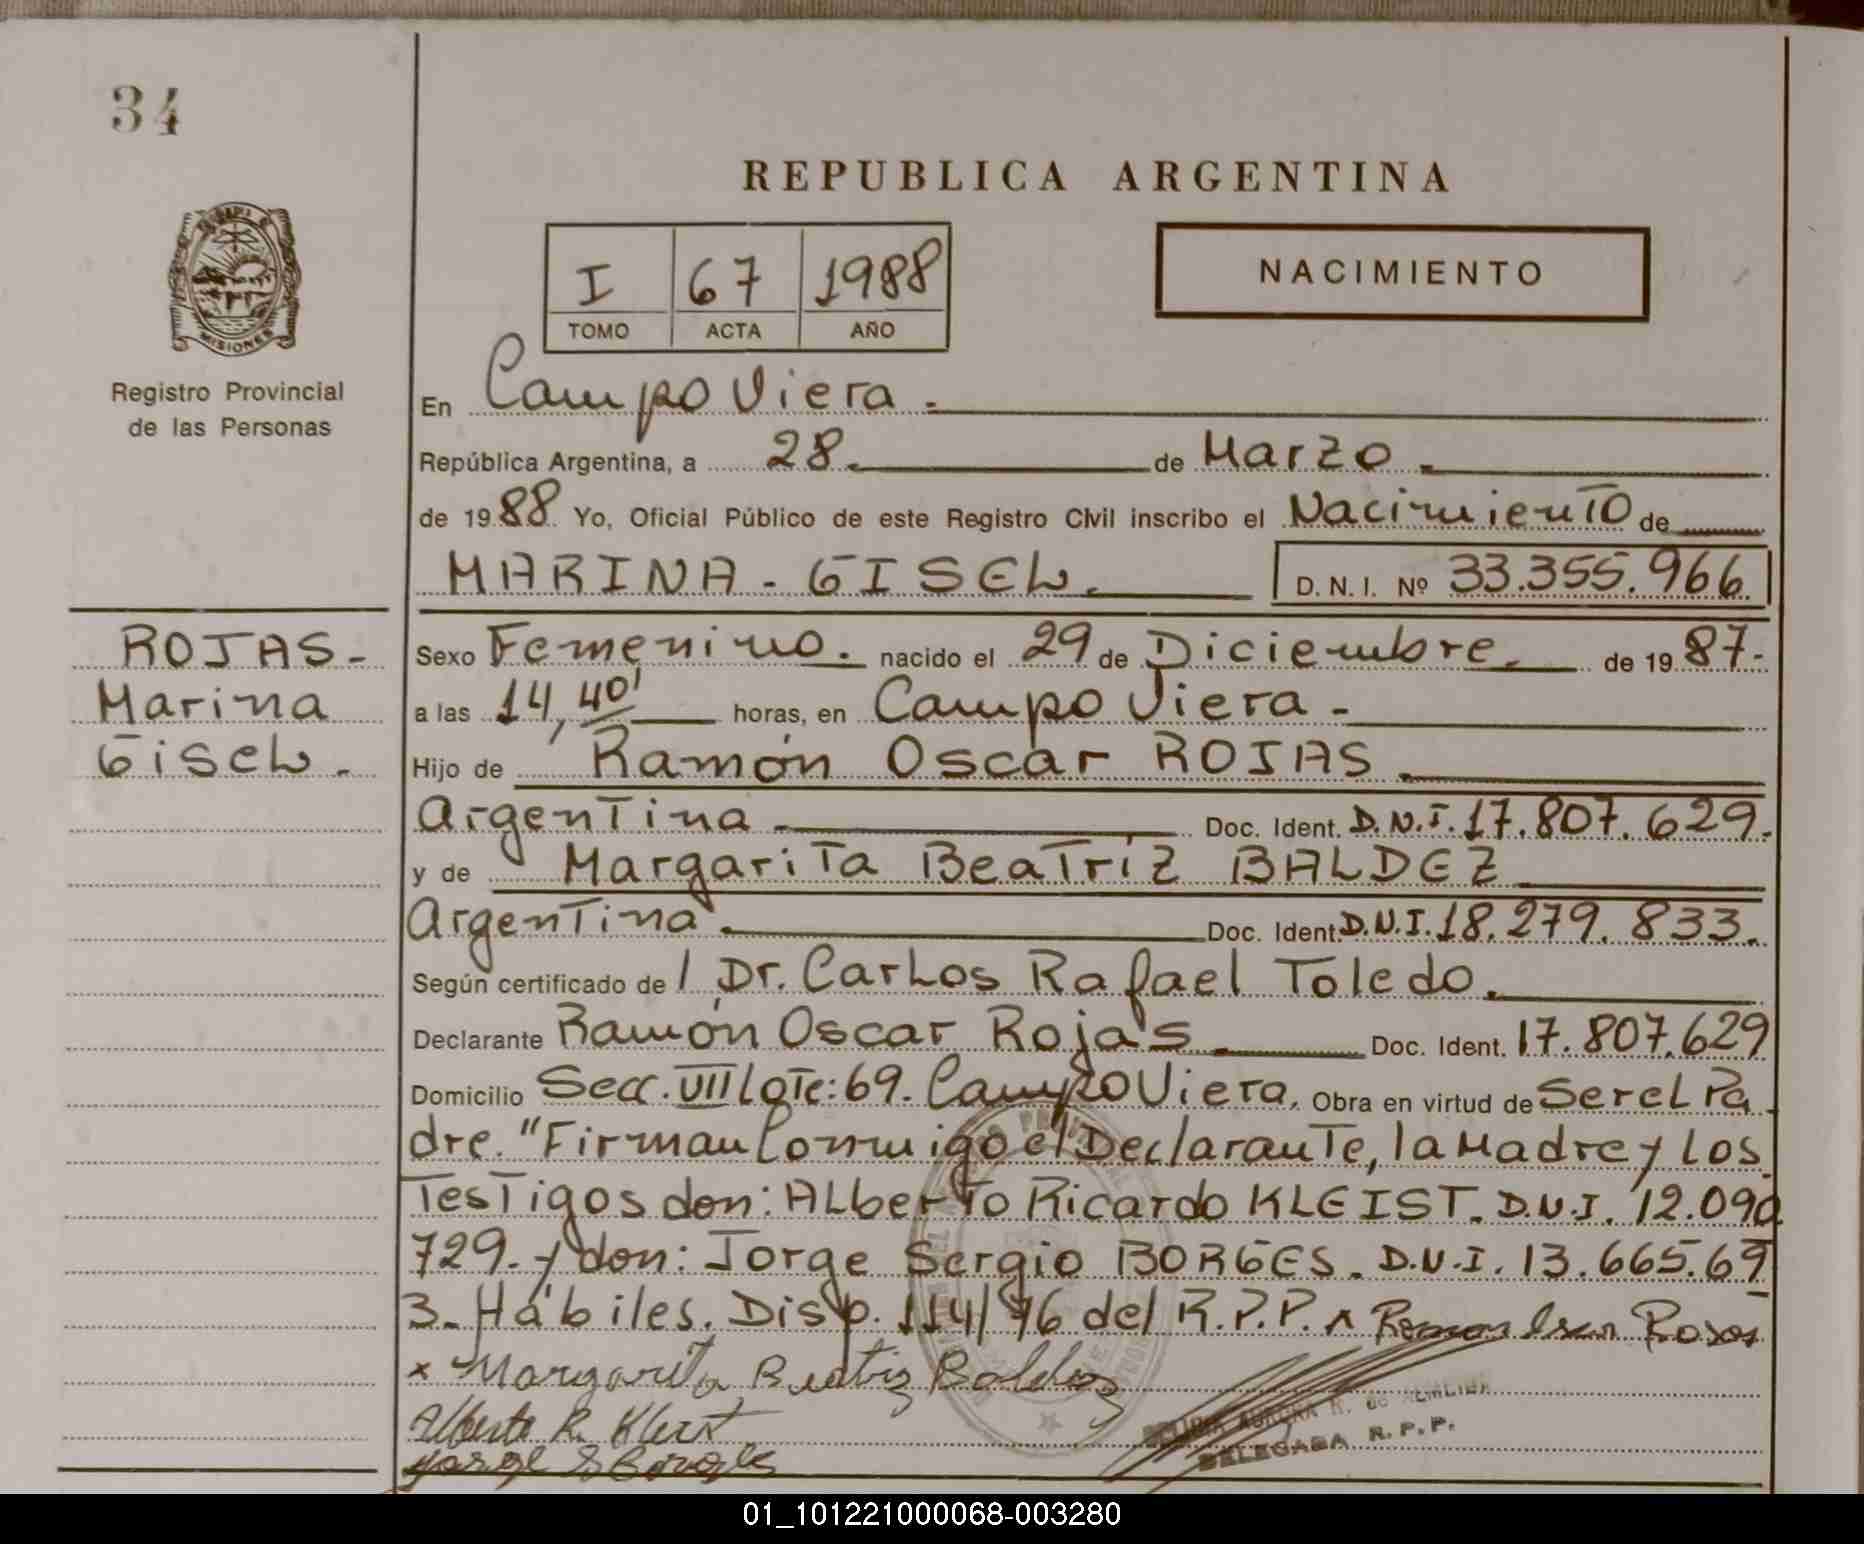 34
REPUBLICA ARGENTINA
I 67 1988
TOMO ACTA AÑO
NACIMIENTO
MISIONES
Registro Provincial
de las Personas
En Campo Viera.
República Argentina, a 28. de Marzo.
de 1988 Yo, Oficial Público de este Registro Civil inscribo el Nacimiento de
MARINA - GISEL. D. N. I. Nº 33.355.966.
ROJAS-
Marina
Gisel.
Sexo Femenino. nacido el 29 de Diciembre. de 1987.
a las 14,40' horas, en Campo Viera -
Hijo de Ramón Oscar ROJAS.
Argentina. Doc. Ident. D.N.I. 17.807.629.
y de Margarita Beatríz BALDEZ
Argentina. Doc. Ident. D.N.I. 18.279.833.
Según certificado de l Dr. Carlos Rafael Toledo.
Declarante Ramón Oscar Rojas. Doc. Ident. 17.807.629
Domicilio Secc. VII Lote: 69. Campo Viera. Obra en virtud de Ser el Pa
dre. "Firman Conmigo el Declarante, la Madre y Los
Testigos don: Alberto Ricardo KLEIST. D.N.I. 12.090
729. y don: Jorge Sergio BORGES. D.N.I. 13.665.69
3. Hábiles. Disp. 114/76 del R.P.P. x Ramon Rojas
x Margarita Beatriz Baldez
Alberto R. Kleist
Jorge S Borges
DELEGADA R.P.P.
01_101221000068-003280